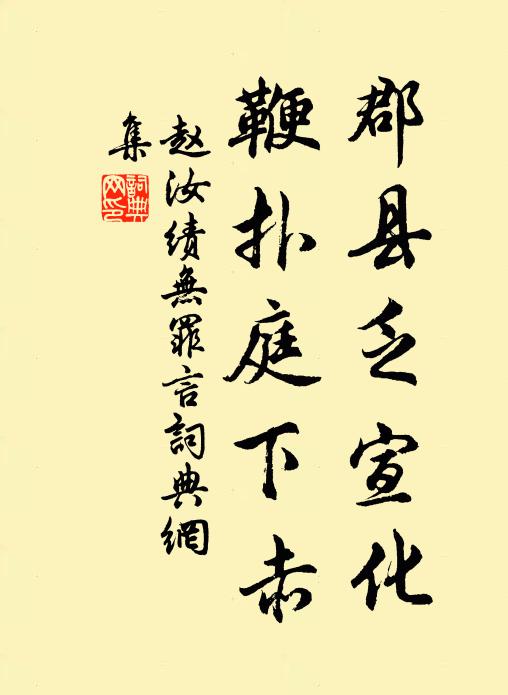 郡县乏宣化
鞭扑庭下赤
赵汝绩無罪言詞典網
集
詞典
网印